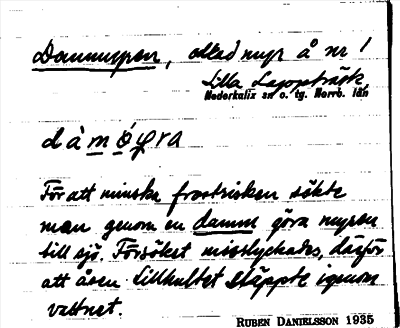 Dammyren, odlad myr å nr 1
Lilla Lappträsk,
Nederkalix sn o. tg. Norrb. län
För att minska frostrisken sökte
man genom en damm göra myren
till sjö. Försöket misslyckades, därför
att åsen Lillkultet släppte igenom
vattnet.
RUBEN DANIELSSON 1935